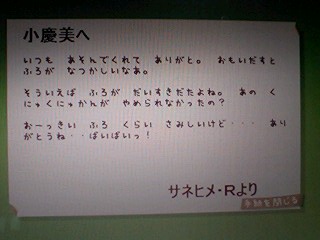 小慶美へ
いつも　あそんでくれて　ありがと。　おもいだすと
ふろが　なつかしいなあ。
そういえば　ふろが　だいすきだたよね。　あの　く
にゃくにゃかんが　やめられなかったの？
おーっきい　ふろ　くらい　さみしいけど・・・　あり
がとうね・・ばいばいっ！
サネヒメ・Rより
手紙を閉じる